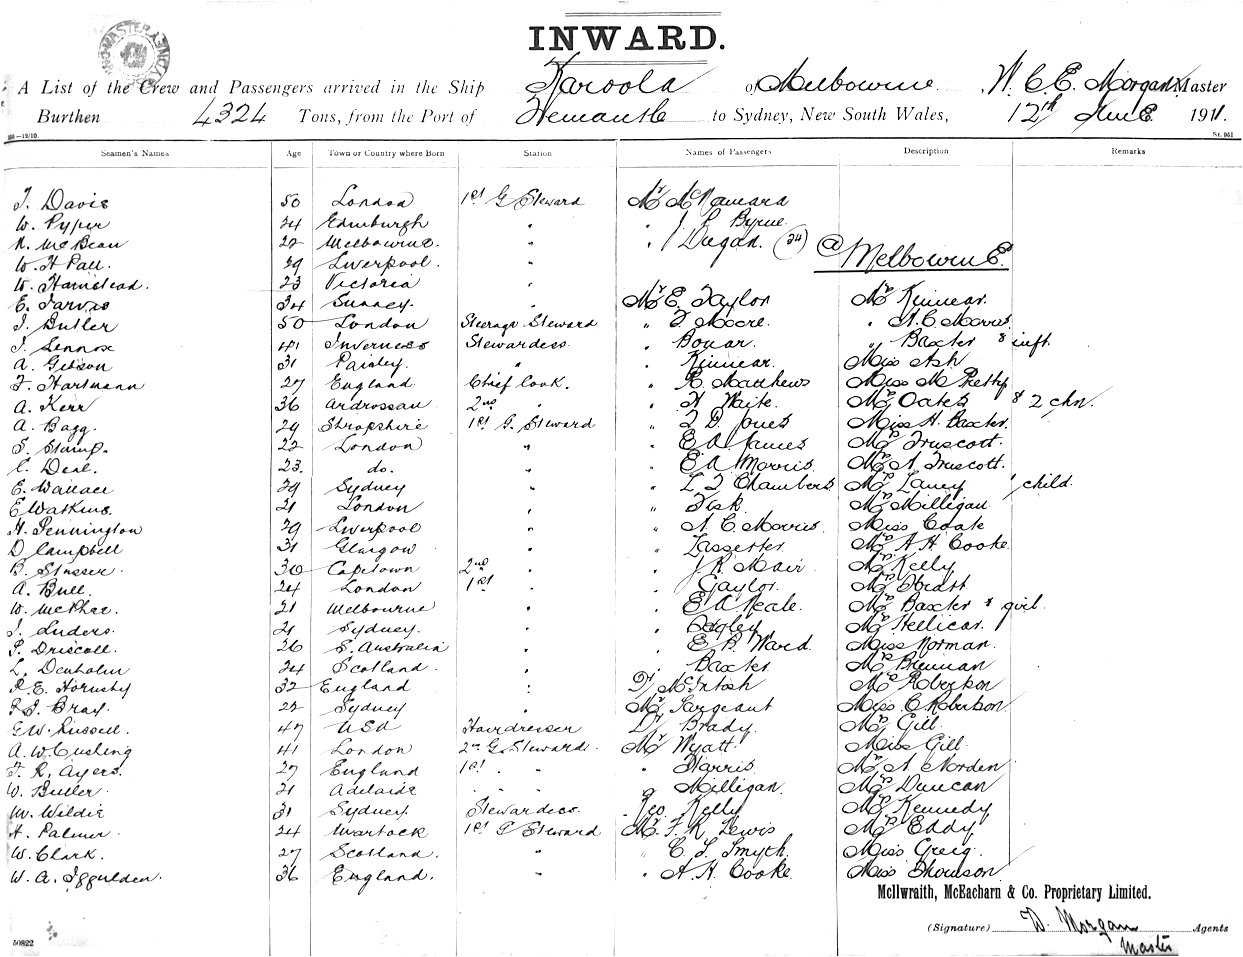 INWARD.
A List of the Crew and Passengers arrived in the Ship Karoola of Melbourne, W. C. E. Morgan Master
Burthen 4324 Tons, from the Port of Fremantle to Sydney, New South Wales, 12th June 1911.
St. 961
Seamen's Names Age Town or Country where Born Station Names of Passengers Description Remarks
J. Davis 50 London 1st G Steward Mr McNamara
W. Pyper 24 Edinburgh " " J P Byrne
R. McBean 22 Melbourne. " " Dugan. (24) @ Melbourne
W. H Pall. 29 Liverpool. "
W. Hamstead. 23 Victoria "
E. Jarvis 34 Surrey. " Mr E. Taylor Mrs Kinnear.
J. Butler 50 London Steerage Steward " F. Moore. " A. C. Morris
J. Lennox 41 Inverness Stewardess " Bonar. " Baxter & inft
A. Gibson 31 Paisley. " " Kinnear. Miss Ash
F. Hartmann 27 England Chief Cook. " R. Matthews Miss M Pretty
A. Kerr 36 Ardrossan 2nd " " H Waite. Mrs Oates & 2 chn.
A. Bagg. 29 Shropshire 1st G. Steward " T. D. Jones Miss H. Baxter.
S. Stump. 22 London " " E. A. James Mrs Truscott.
C. Deal. 23. do. " " E. A. Morris Mrs A. Truscott.
E. Wallace 29 Sydney " " L T Chambers Mrs Laney 1 child
E Watkins. 21 London " " Fisk. Mrs Milligan
H. Pennington 29 Liverpool " " A. C. Morris Miss Coate
D Campbell 31 Glasgow " " Lassetter. Mrs A H. Cooke.
B. Slusser. 30 Capetown 2nd " " J R. Mair Mrs Kelly
A. Bull. 24 London 1st " " Gaylor. Mrs
W. McPhee. 21 Melbourne " " E A Neale. Mrs Baxter & girl.
J. Luders. 21 Sydney. " " Bagley Mrs Hellicar.
P. Driscoll. 26 S. Australia " " E. B. Ward. Miss Norman.
L. Denholm 24 Scotland. " " Baxter Mrs Brennan
P. E. Hornsby 32 England " Dr McIntosh Mrs Robertson
P. J. Bray. 22 Sydney " Mr Sargeant Miss C Robertson
E. W. Russell. 47 USA Hairdresser Dr Brady. Mrs Gill.
A. W. Cushing 41 London 2nd G. Steward. Mr Wyatt Miss Gill.
F. R. Ayers. 27 England 1st " " Harris Mrs A Norden
W. Butler. 21 Adelaide " " Milligan. Mrs Duncan
M. Wildie 31 Sydney. Stewardess Geo Kelly Mrs Kennedy
H. Palmer. 24 1st G Steward Mr F. R Lewis Mrs Eddy
W. Clark. 27 Scotland. " " C. L. Smyth. Miss Greig.
W. A. Iggulden. 36 England. " " A. H. Cooke Miss Thomson
McIlwraith, McEacharn & Co. Proprietary Limited.
(Signature) W. Morgan Agents
Master
50822